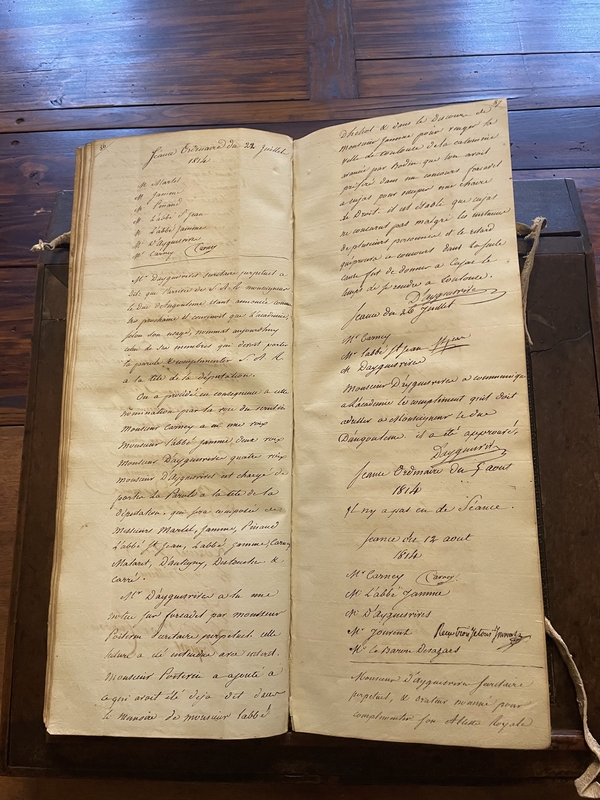 Séance Ordinaire du 22 Juillet
1814
Mr Martel
Mr Jamme
Mr Pinaud
Mr L'abbé St Jean
Mr L'abbé Jamme
Mr D'ayguesvives
Mr Carney Carney
Mr Dayguesvives secretaire perpetuel a
dit, que l'arrivée de S. A. R. monseigneur
le Duc d'angouleme etant annoncée comme
très prochaine il convenoit que l'academie,
selon son usage, nommat aujourd'huy
celui de ses membres qui devoit porter
la parole & complimenter S. A. R.
a la tête de la députation.
On a procédé en consequence a cette
nomination par la voie du scrutin
Monsieur Carney a eu une voix
Monsieur l'abbé Jamme, deux voix
Monsieur D'ayguesvives quatre voix
monsieur D'ayguesvives est chargé de
porter la Parole a la tête de la
députation. qui sera composée de
Messieurs Martel, Jamme, Pinaud
L'abbé St Jean, L'abbé Jamme, Carney
Malaret, D'antigny, Destouche &
carré.
Mr D'ayguesvives a lu une
notice sur forcadel par monsieur
Poitevin secretaire perpetuel cette
lecture a été entendue avec interet.
Monsieur Poitevin a ajouté a
ce qui avoit été déja dit dans
le memoire de monsieur l'abbé
D'heliot & dans le Discours de
monsieur Jamme pour venger la
ville de toulouse de la calomnie
vomie par Bodin que l'on avoit
préféré dans un concours forcadel
a cujas pour occuper une chaire
de Droit. il est etabli que cujas
ne concourut pas malgré les instances
de plusieurs personnes et le retard
qu'eprouva le concours dans la seule
cause fut de donner a Cujas le
temps de se rendre a toulouse.
D'ayguesvives
Séance du 26 Juillet
Mr Carney
Mr l'abbé St Jean St Jean
Mr Dayguesvives
Monsieur D'ayguesvives a communiqué
a l'academie le compliment qu'il doit
adresser a Monseigneur le duc
D'angouleme. il a été approuvé,
D'ayguesvives
Séance Ordinaire du 5 aout
1814
il n'y a pas eu de Séance.
Séance du 12 aout
1814
Mr Carney Carney
Mr L'abbé Jamme
Mr D'Ayguesvives
Mr Jouvent Reçu trois Jetons Jouvent
Mr le Baron Desazars
Monsieur D'ayguesvives secretaire
perpetuel, & orateur nommé pour
complimenter son Altesse Royale